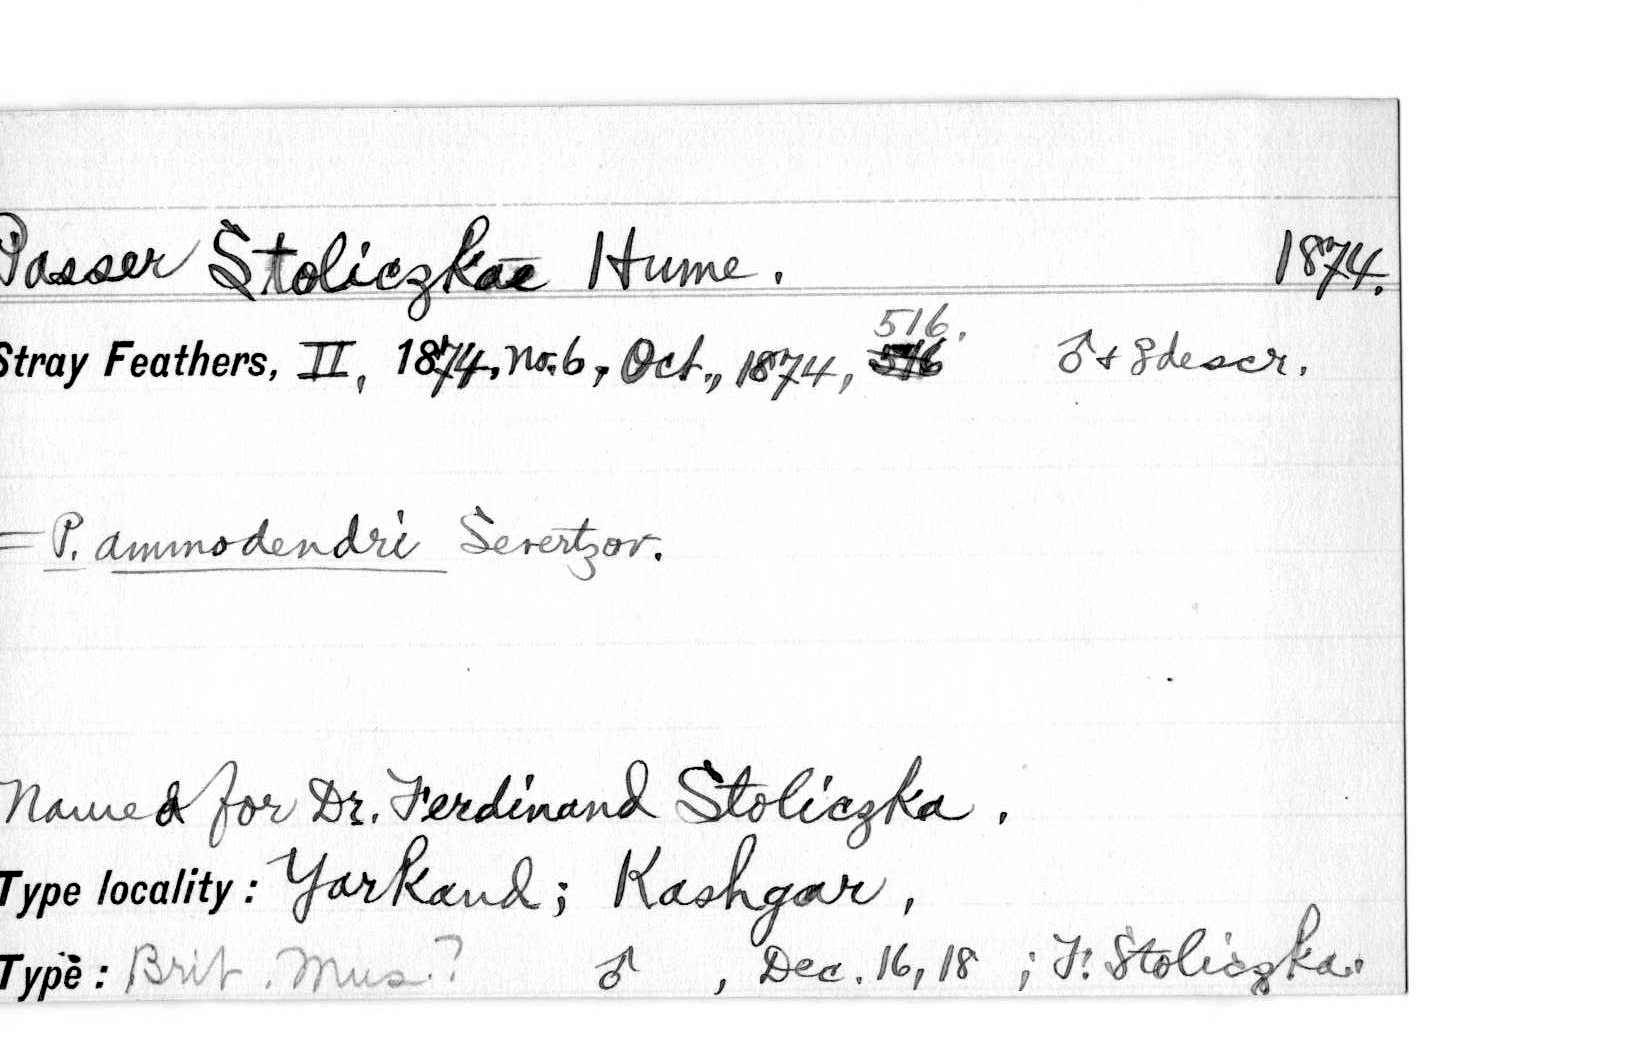 Passer Stoliczkae Hume. 1874.
Stray Feathers, II, 1874, no. 6, Oct., 1874, 516. ♂ + ♀ descr.
= P. ammodendri Severtzov.
Named for Dr. Ferdinand Stoliczka.
Type locality: Yarkand; Kashgar,
Type: Brit. Mus.? ♂ , Dec. 16, 18 ; F. Stoliczka.